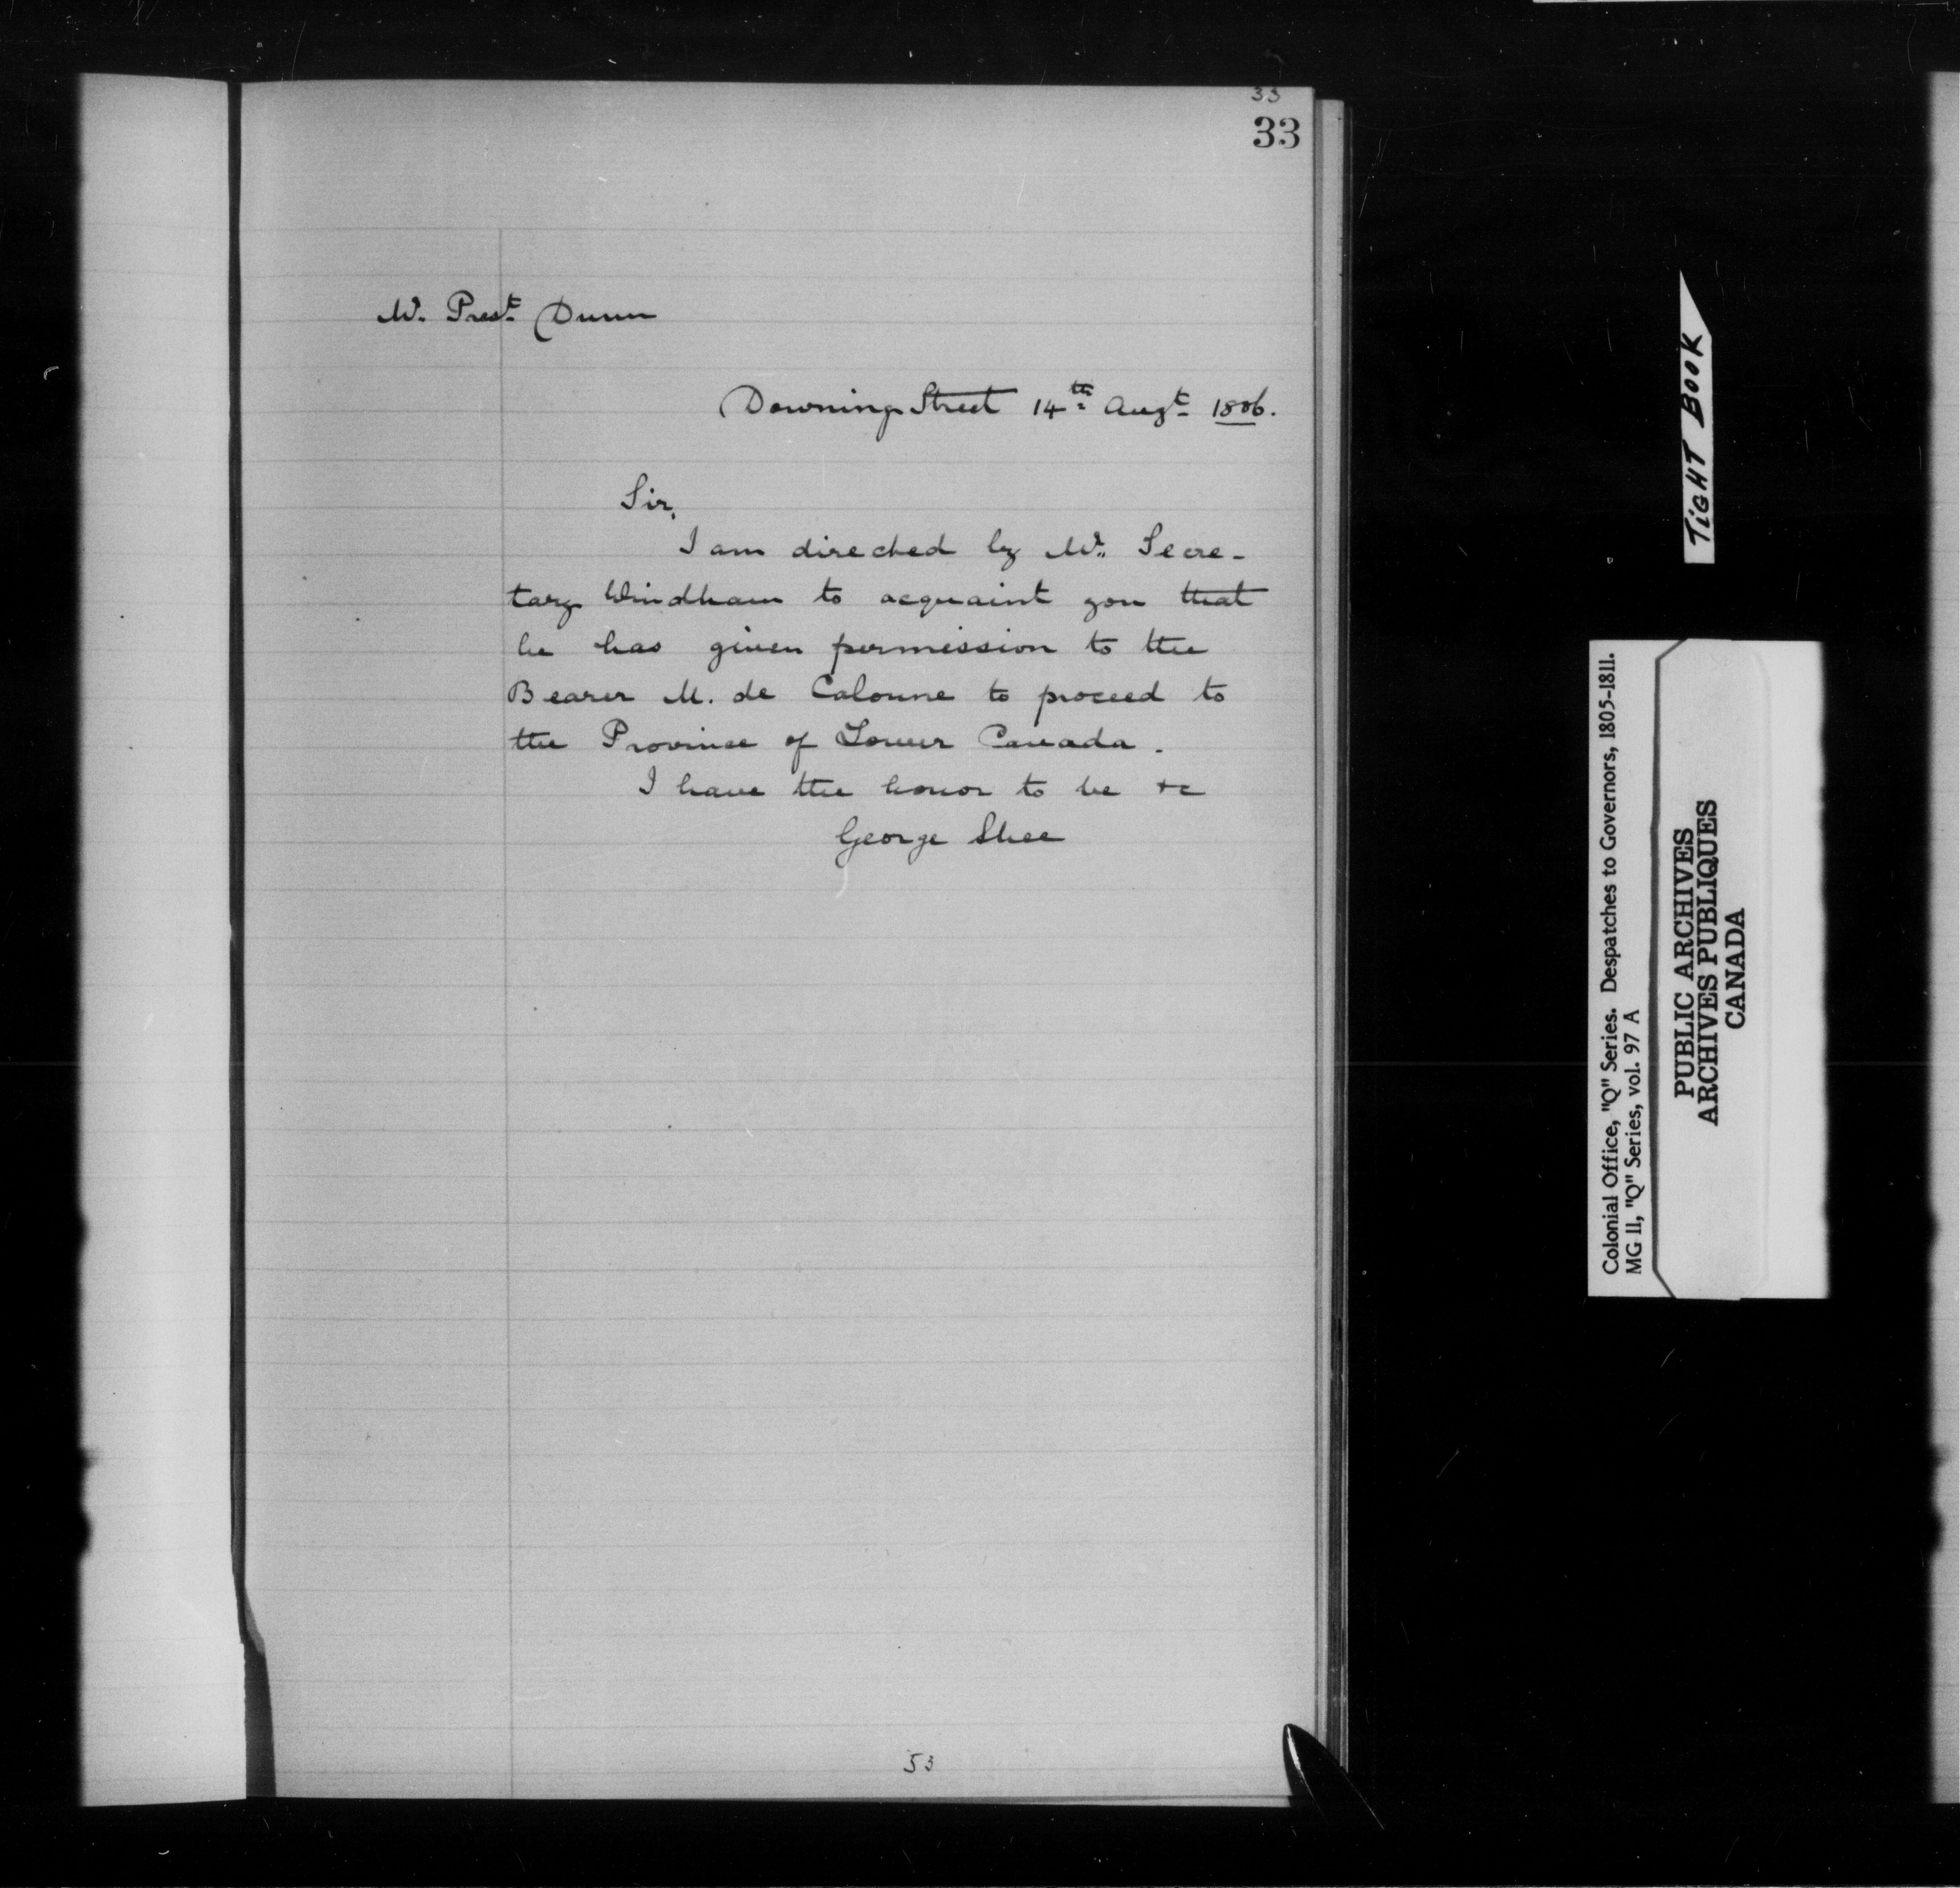 33
33
Mr. Prest. Dunn
Downing Street 14th Augt. 1806.
Sir,
I am directed by Mr. Secre-
tary Windham to acquaint you that
he has given permission to the
Bearer M. de Calonne to proceed to
the Province of Lower Canada.
I have the honor to be &c
George Shee
53
TIGHT BOOK
Colonial Office, "Q" Series. Despatches to Governors, 1805-1811.
MG 11, "Q" Series, vol. 97 A
PUBLIC ARCHIVES
ARCHIVES PUBLIQUES
CANADA